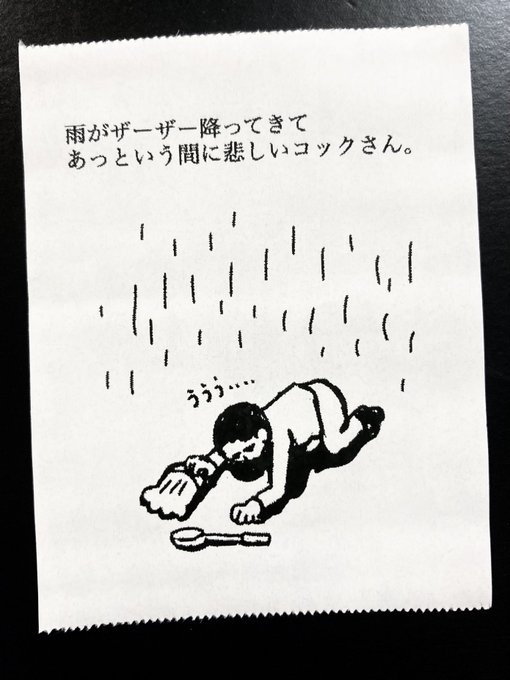 雨がザーザー降ってきて
あっという間に悲しいコックさん。
ううう‥‥